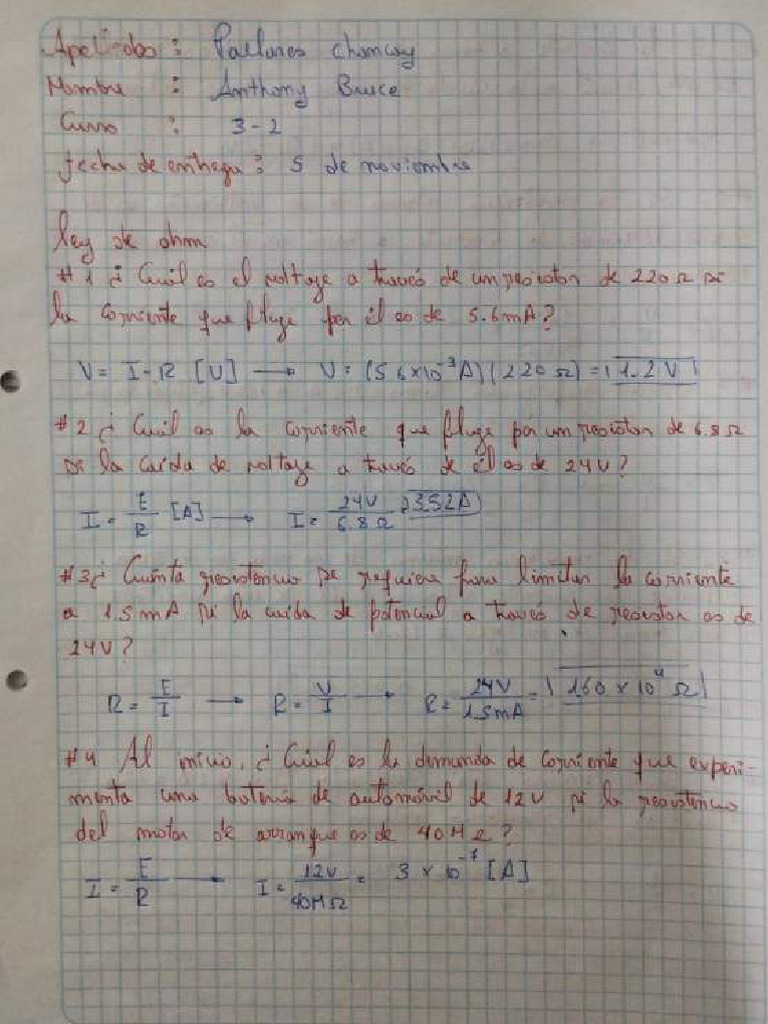 Apellidos : Pallares Chancay
Nombre : Anthony Bruce
Curso : 3-2
fecha de entrega : 5 de noviembre
ley de ohm
#1 ¿ Cuál es el voltaje a través de un resistor de 220 Ω si
la corriente que fluye por él es de 5.6mA?
V = I - R [V] → V = (5.6×10⁻³A)(220 Ω) = 1.2 V
#2 ¿ Cuál es la corriente que fluye por un resistor de 6.8 Ω
si la caída de voltaje a través de él es de 24V?
I = E/R [A] → I = 24V/6.8 Ω = 3.52A
#3 ¿ Cuánta resistencia se requiere para limitar la corriente
a 1.5mA si la caída de potencial a través de resistor es de
24V?
R = E/I → R = V/I → R = 24V/1.5mA = 1.60 × 10⁴ Ω
#4 Al inicio, ¿ Cuál es la demanda de corriente que experi-
menta una batería de automóvil de 12V si la resistencia
del motor de arranque es de 40MΩ?
I = E/R → I = 12V/40MΩ = 3 × 10⁻⁷ [A]